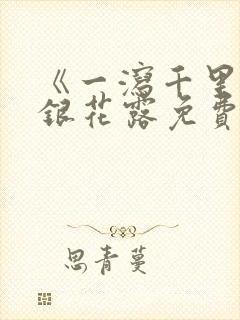 《一瀉千里
銀花露免費
思青蔓